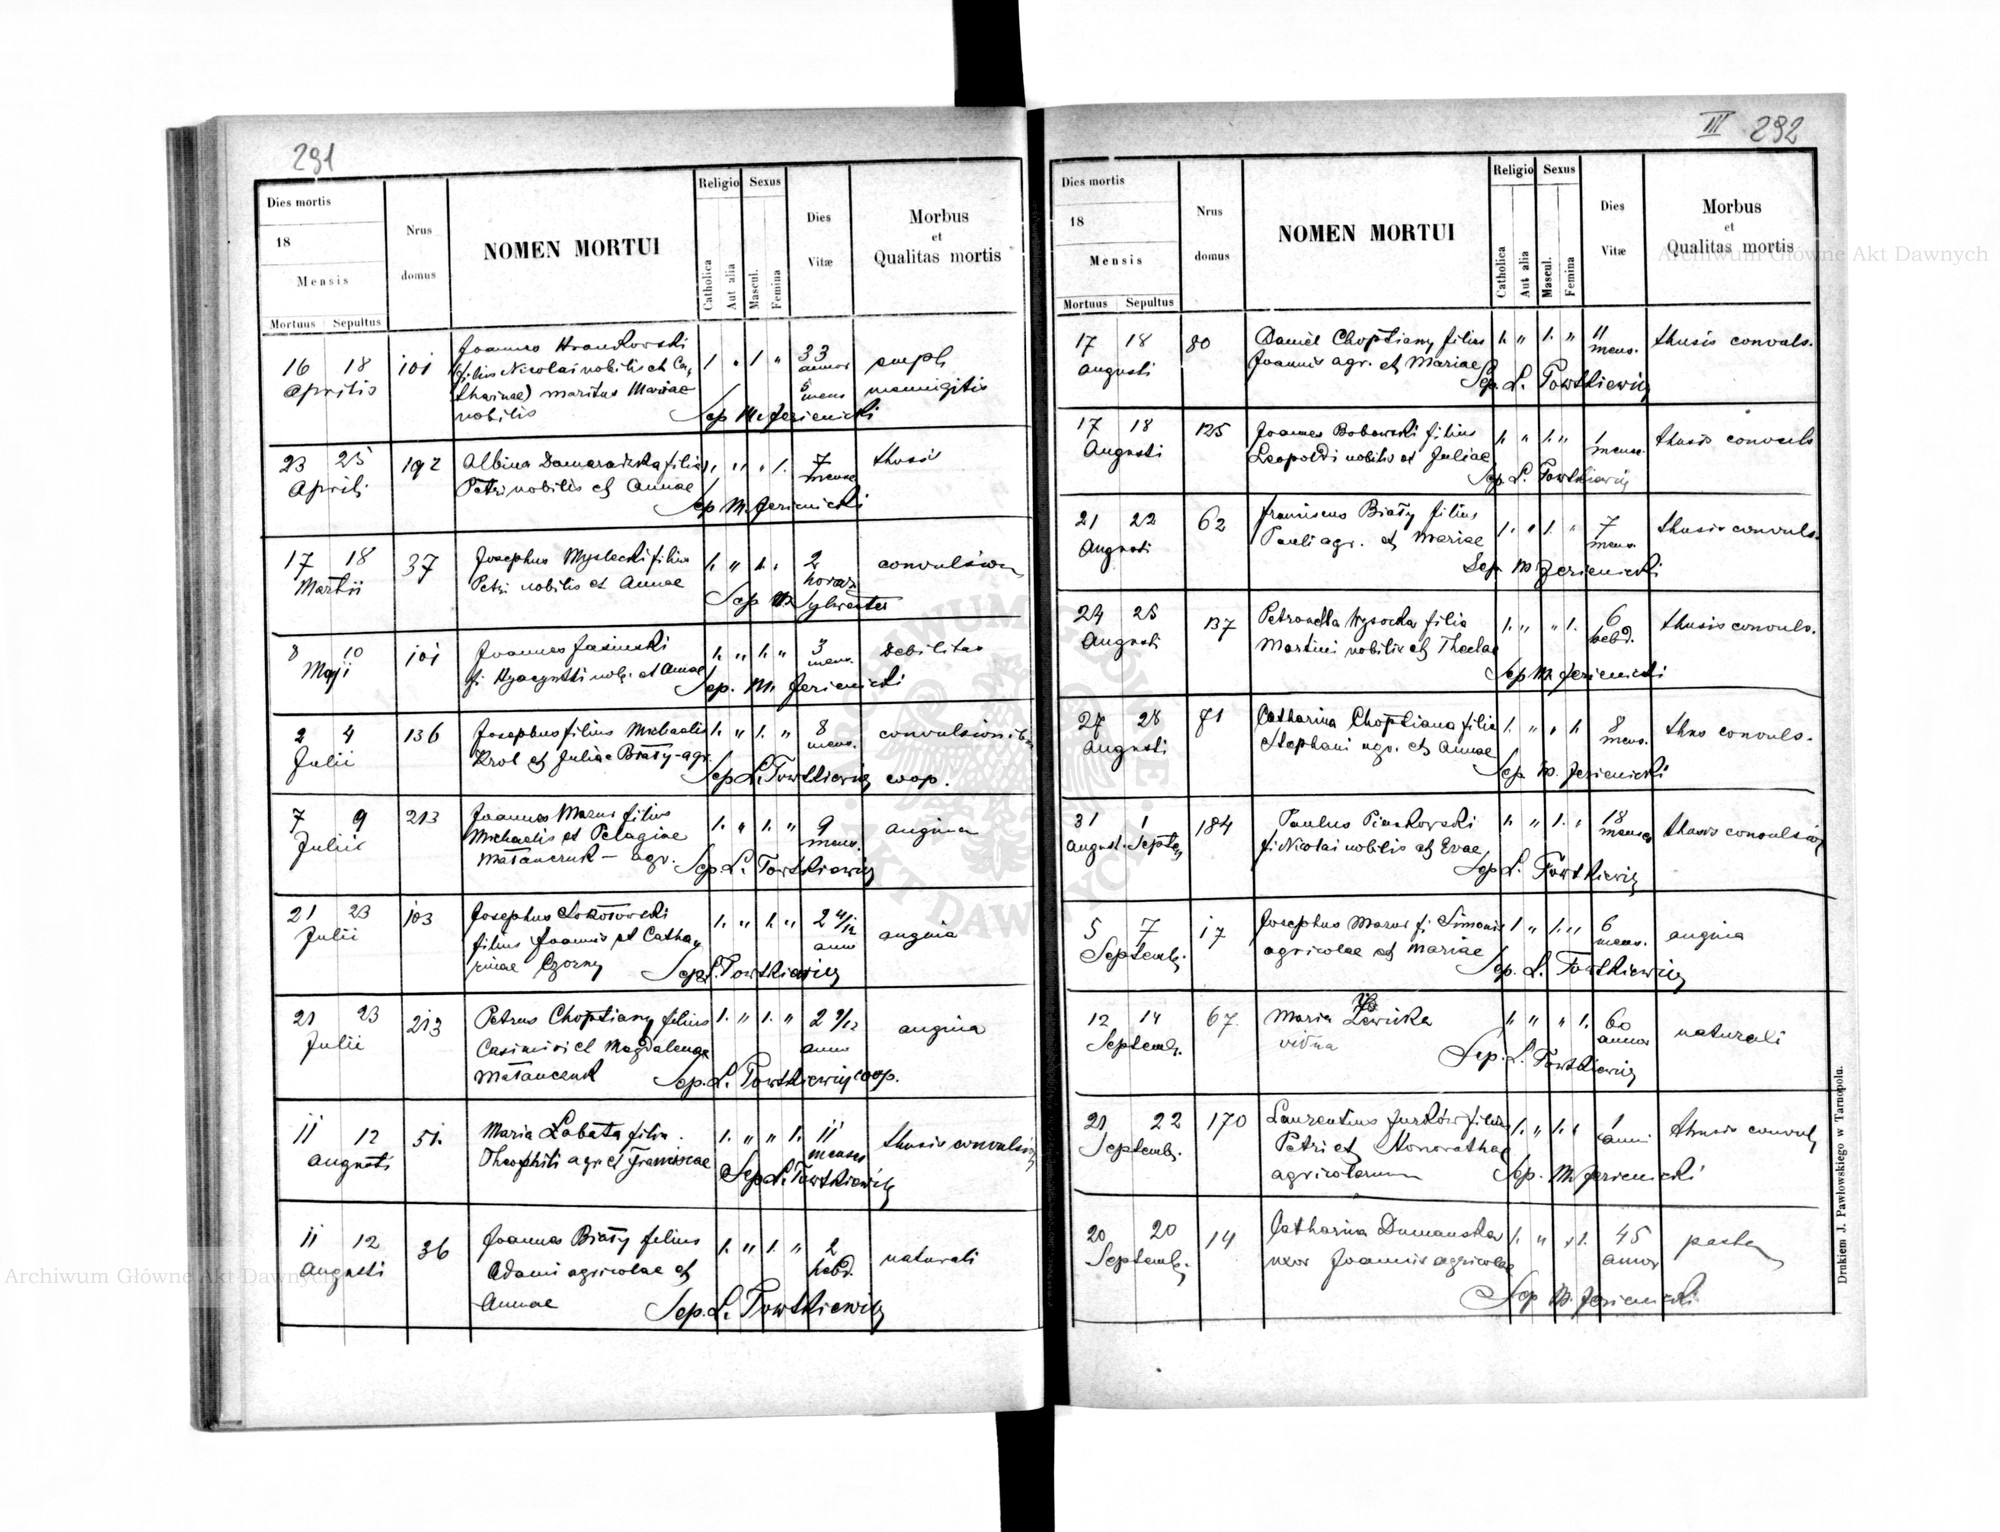 291
Dies mortis
18
Mensis
Mortuus Sepultus
Nrus
domus
NOMEN MORTUI
Religio
Catholica
Aut alia
Sexus
Mascul.
Femina
Dies
Vitæ
Morbus
et
Qualitas mortis
16 18 101
Aprilis
Joannes
filius Nicolai nobilis et Ca,
tharinae) maritus Mariae
nobilis
1 " 1 " 33
annor
5
mens
Sep M. Jezienicki
23 25 192
Aprili
Albina filia
Petri nobilis et Annae
1. " " 1. 7
mense
Sep M. Jezienicki
17 18 37
Martii
Josephus Myslecki filius
Petri nobilis et Annae
1. " 1. " 2
horar
convulsion
Sep M. Sylwester
8 10 101
Maji
Joannes Jasinski
f. Hyacynthi nob. et Annae
1. " 1. " 3
mens.
Debilitas
Sep. M. Jezienicki
2 4 136
Julii
Josephus filius Michaelis
Krol et Juliae Biały agr.
1. " 1. " 8
mens.
Sep L. Towtkiewicz coop.
7 9 213
Julii
Joannes Mazur filius
Michaelis et Pelagiae
Małanczuk - agr.
1. " 1. " 9
mens.
angina
Sep L. Towtkiewicz
21 23 103
Julii
Josephus Sokołowski
filius Joannis et Catha,
rinae Czorny
1. " 1. " 2 4/12
anno
angina
Sep L. Towtkiewicz
21 23 213
Julii
Petrus Choptiany filius
Casimiri et Magdalenae
Małanczuk
1. " 1. " 2 9/12
anno
angina
Sep. L. Towtkiewicz coop.
11 12 51.
augusti
Maria Łabata filia
Theophili agr. et Franciscae
1. " " 1. 11
menses
Sep L. Towtkiewicz
11 12 36
augusti
Joannes Biały filius
Adami agricolae et
Annae
1. " 1. " 2
hebd.
naturali
Sep. L. Towtkiewicz
III 292
Dies mortis
18
Mensis
Mortuus Sepultus
Nrus
domus
NOMEN MORTUI
Religio
Catholica
Aut alia
Sexus
Mascul.
Femina
Dies
Vitæ
Morbus
et
Qualitas mortis
17 18 80
augusti
Daniel Choptiany filius
Joannis agr. et Mariae
1. " 1. " 11
mens.
thusis convuls.
Sep. L. Towtkiewicz
17 18 125
Augusti
Joannes Bobowski filius
Leopoldi nobilis et Juliae
1. " 1. " 1
mense.
thusis convuls
Sep L. Towtkiewicz
21 22 62
Augusti
Franciscus Biały filius
Pauli agr. et Mariae
1. " 1. " 7
mens.
thusis convuls.
Sep. M. Jezienicki
24 25 137
Augusti
Petronella Wysocka filia
Martini nobilis et Theclae
1. " " 1. 6
hebd.
thusis convuls.
Sep M. Jezienicki
27 28 71
augusti
Catharina Choptiana filia
Stephani agr. et Annae
1. " " 1. 8
mens.
convuls.
Sep. M. Jezienicki
31 1 184
August. Septem
Paulus Piaskowski
f. Nicolai nobilis et Evae
1. " 1. " 18
menses
Sep L. Towtkiewicz
5 7 17
Septemb.
Josephus Mazur f. Simonis
agricolae et Mariae
1 " 1. " 6
mens.
angina
Sep. L. Towtkiewicz
12 14 67
Septemb.
Maria Lewicka
vidua
1. " " 1. 60
annor
naturali
Sep. L. Towtkiewicz
21 22 170
Septemb.
Laurentius Jurków filius
Petri et Honorathae
agricolarum
1. " 1. " 1
anni
Sep. M. Jezienicki
20 20 14
Septemb.
Catharina Dumanska
uxor Joannis agricolae
1. " " 1. 45
annor
Sep M. Jezienicki
Drukiem J. Pawłowskiego w Tarnopolu.
Archiwum Główne Akt Dawnych
Archiwum Główne Akt Dawnych
ARCHIWUM GŁÓWNE AKT DAWNYCH